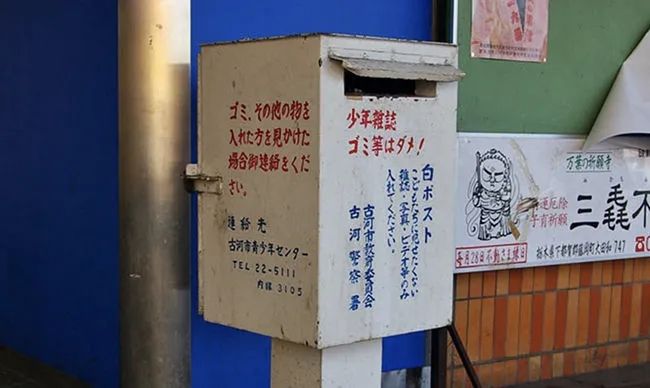 ゴミ、その他の物を
入れた方を見かけた
場合御連絡をくだ
さい。
連絡先
古河市青少年センター
TEL 22-5111
内線 3105
少年雑誌
ゴミ等はダメ!
白ポスト
こどもたちに見せたくない
雑誌・写真・ビデオ等のみ
入れてください。
古河市教育委員会
古河警察署
万葉の祈願寺
厄除
子育祈願
三毳不
毎月28日不動さま縁日
栃木県下都賀郡藤岡町大田和 747